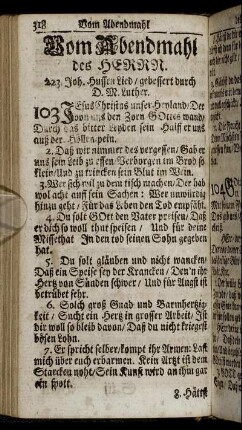 318 Vom Abendmahl
Vom Abendmahl
des HERRN.
223. Joh. Hussen Lied / gebessert durch
D. M. Luther.
103 JEsus Christus unser Heyland / Der
von uns den Zorn GOttes wand /
Durch das bitter Leyden sein Halff er uns
auß der Höllen pein.
2. Daß wir nimmer des vergessen / Gab er
uns sein Leib zu essen Verborgen im Brod so
klein / Und zu trincken sein Blut im Wein.
3. Wer sich wil zu dem tisch machen / Der hab
wol acht auff sein Sachen : Wer unwürdig
hinzu geht / Für das Leben den Tod empfäht.
4. Du solt GOtt den Vater preisen / Daß
er dich so woll thut speisen / Und für deine
Missethat In den tod seinen Sohn gegeben
hat.
5. Du solt gläuben und nicht wancken /
Daß ein Speise sey der Krancken / Den'n ihr
Hertz von Sünden schwer / Und für Angst ist
betrübet sehr.
6. Solch groß Gnad und Barmhertzig-
keit / Sucht ein Hertz in grosser Arbeit / Ist
dir woll so bleib davon / Daß du nicht kriegest
bösen Lohn.
7. Er spricht selber / kompt ihr Armen: Last
mich über euch erbarmen. Kein Artzt ist dem
Starcken noht / Sein Kunst wird an ihm gar
ein spott.
8. Hätest